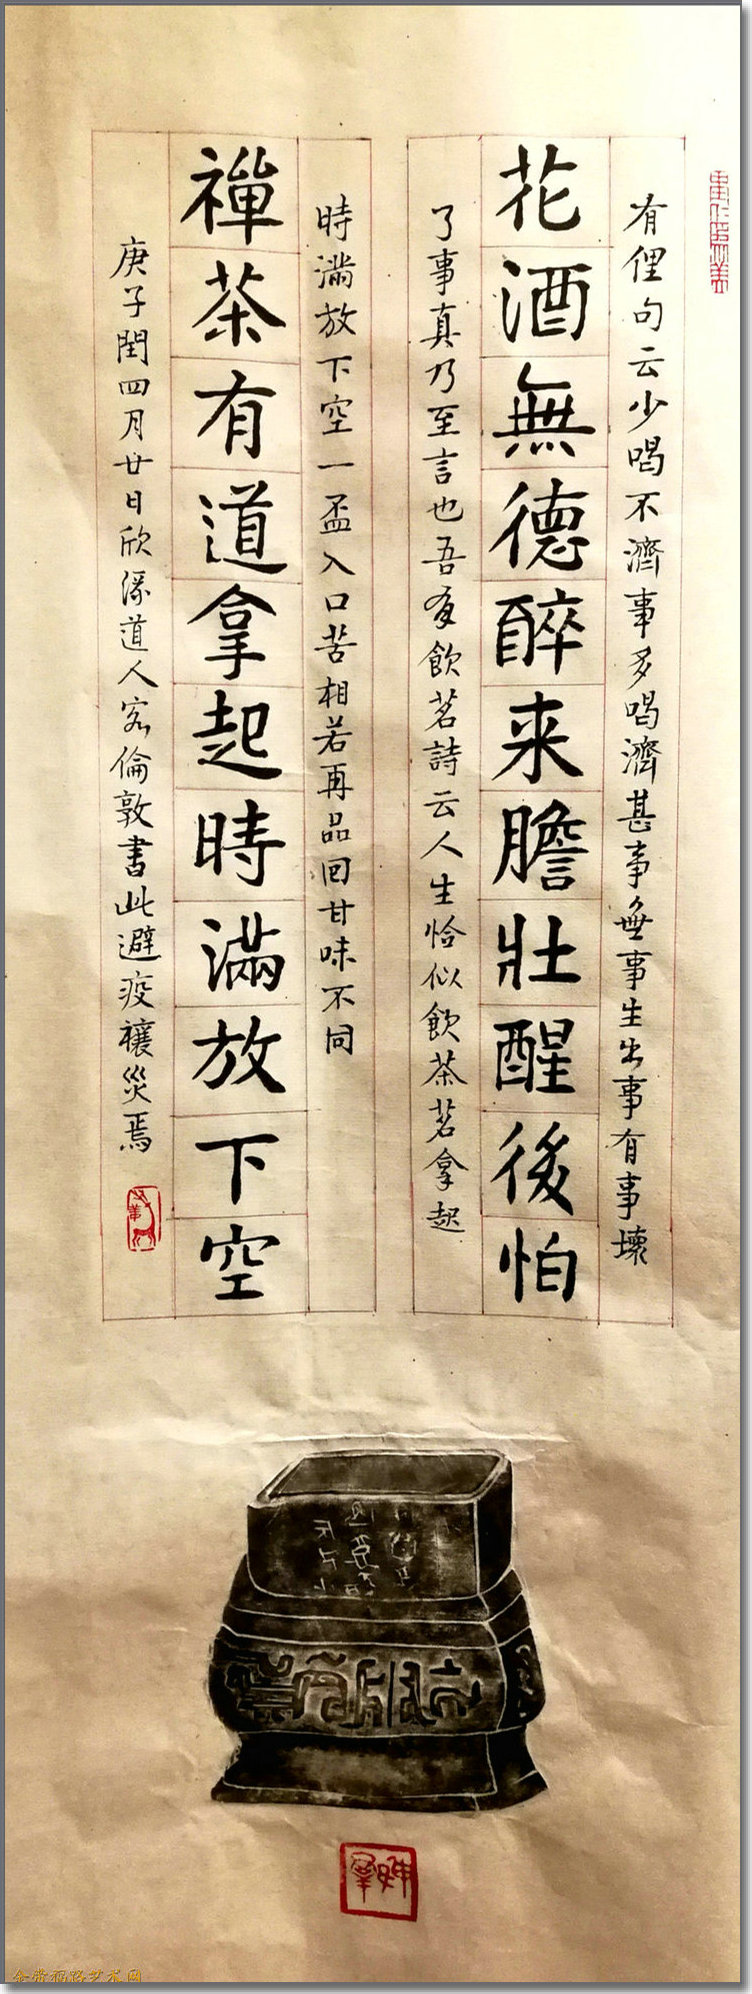 有俚句云少喝不濟事多喝濟甚事無事生出事有事壞
花酒無德醉来膽壯醒後怕
了事真乃至言也吾有飲茗詩云人生恰似飲茶茗拿起
時滿放下空一盃入口苦相若再品回甘味不同
禪茶有道拿起時滿放下空
庚子閏四月廿日欣 道人客倫敦書此避疫禳災焉